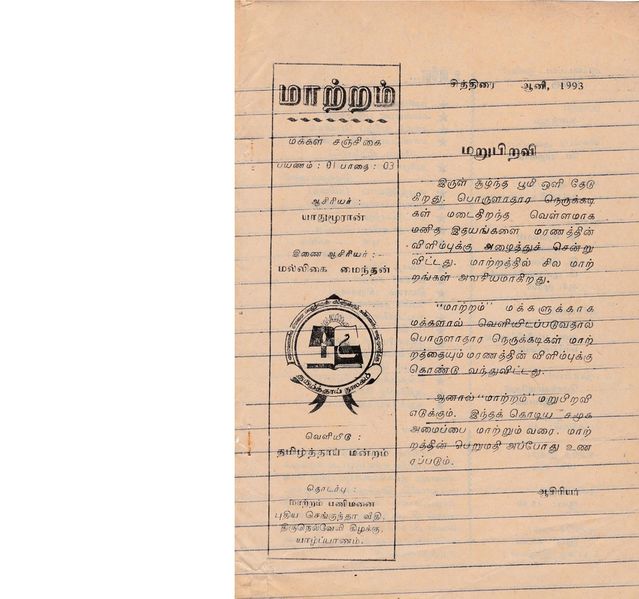 மாற்றம்
மக்கள் சஞ்சிகை
பயணம் : 01 பாதை : 03
ஆசிரியர் :
யாதுமூரான்
இணை ஆசிரியர் :
மல்லிகை மைந்தன்
தமிழ்த்தாய் மன்றம்
வெளியீடு :
தமிழ்த்தாய் மன்றம்
தொடர்பு :
மாற்றம் பணிமனை
புதிய செங்குந்தா வீதி,
திருநெல்வேலி கிழக்கு,
யாழ்ப்பாணம்.
சித்திரை ஆனி, 1993
மறுபிறவி
இருள் சூழ்ந்த பூமி ஒளி தேடு
கிறது. பொருளாதார நெருக்கடி
கள் மடைதிறந்த வெள்ளமாக
மனித இதயங்களை மரணத்தின்
விளிம்புக்கு அழைத்துச் சென்று
விட்டது. மாற்றத்தில் சில மாற்
றங்கள் அவசியமாகிறது.
"மாற்றம்" மக்களுக்காக
மக்களால் வெளியிடப்படுவதால்
பொருளாதார நெருக்கடிகள் மாற்
றத்தையும் மரணத்தின் விளிம்புக்கு
கொண்டு வந்துவிட்டது.
ஆனால் "மாற்றம்" மறுபிறவி
எடுக்கும். இந்தக் கொடிய சமுக
அமைப்பை மாற்றும் வரை. மாற்
றத்தின் பெறுமதி அப்போது உண
ரப்படும்.
ஆசிரியர்